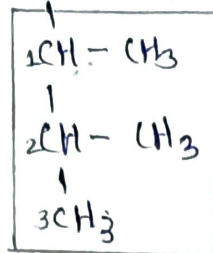 1CH - CH3
2CH - CH3
3CH3